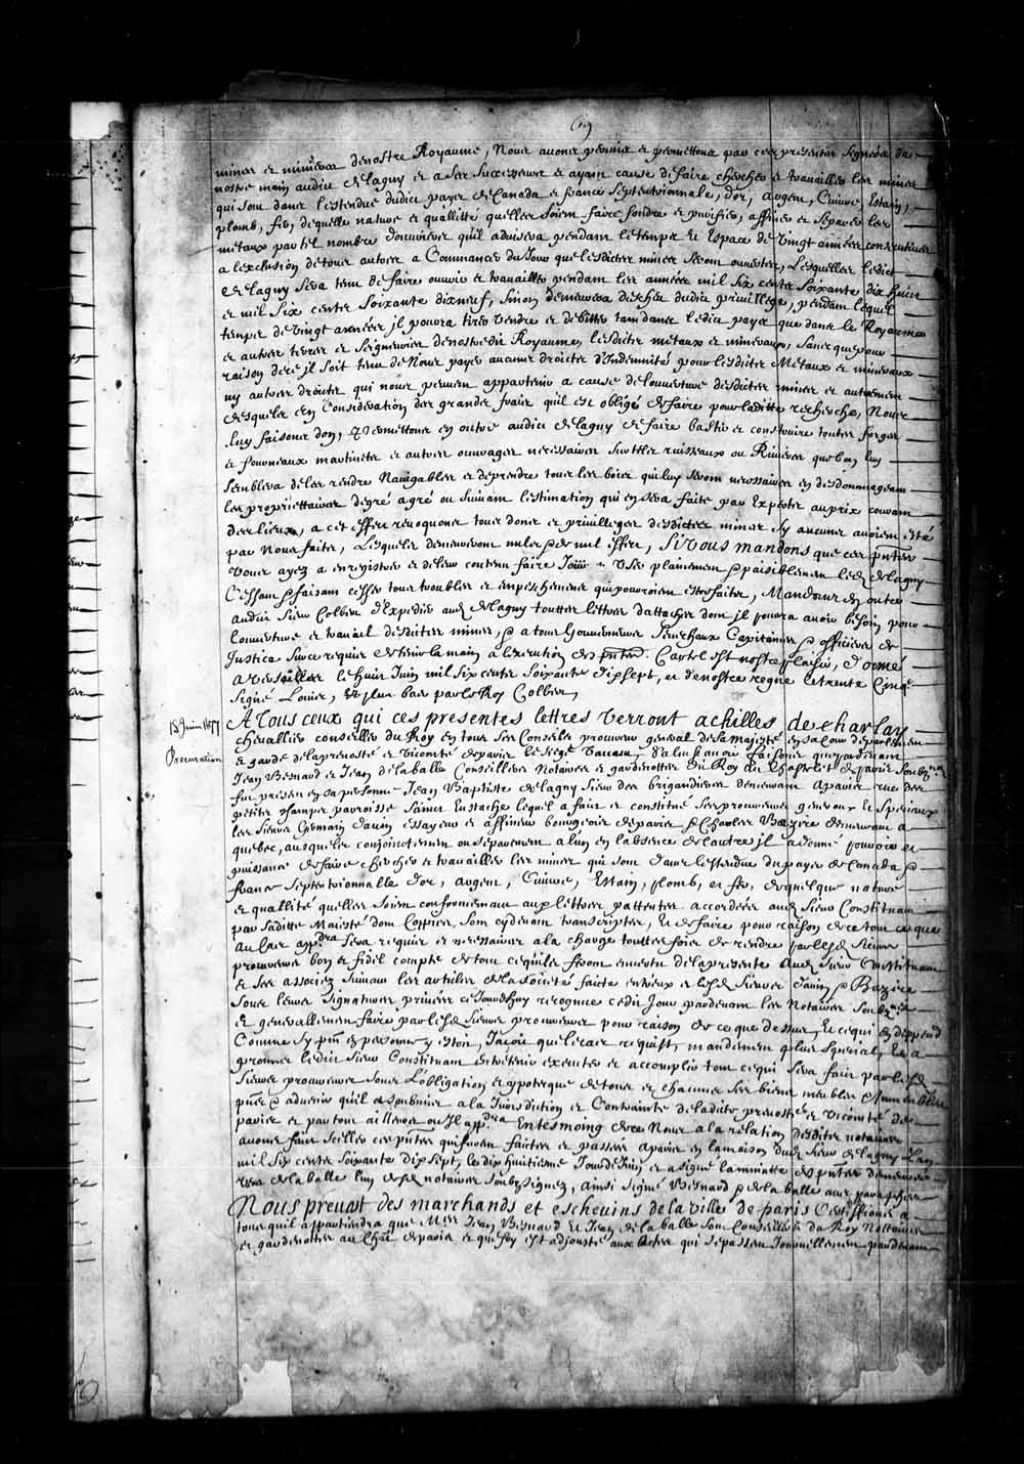 69
mines et minieres denostre Royaume, Nous avons permis et permettons par ces presentes signées de
nostre main audict delagny et a ses successeurs et ayans cause defaire chercher et travailler les mines
qui sont dans lestendue dudict payes de Canada et france septentrionnale, d'or, argent, Cuivre, Estain,
plomb, fer, dequelle nature et quallitté quelles soient faire fondre et purifier, affiner et separer les
metaux par tel nombre douvriers quil advisera pendant le temps et Espace de vingt années consecutives
a lexclusion detous autres a Commancer du Jour que lesdictes mines seront ouvertes, Lesquelles ledict
delagny sera tenu de faire ouvrir et travailler pendant les années mil six cents soixante dix huict
et mil six cents soixante dixneuf, sinon demeurera descheu dudict privillege, pendant lequel
temps de vingt années jl pourra tirer vendre et debitter tant dans ledict payes que dans le Royaume
et autres terres et seigneuries denostredit Royaume, lesdicts metaux et mineraux, sans que pour
raison dece jl soit tenu de Nous payer aucuns droicts d'Indemnité pour lesdicts Metaux et mineraux
ny autres droicts qui nous peuvent appartenir a cause de louverture desdictes mines et autrement
desquels en Consideration des grands fraix quil est obligé de faire pour laditte recherche, Nous
luy faisons don, Permettons en outre audict delagny de faire bastir et construire toutes forges
et fourneaux martinets et autres ouvrages necessaires sur les ruisseaux ou Rivieres que bon luy
semblera de les rendre Navigables et deprendre tous les bois qui luy seront necessaires en desdommageant
les propriettaires degré agré ou suivant lestimation qui en sera faite par Experts au prix courant
des lieux, a cet effect revoquons tous dons et privilleges desdictes mines sy aucuns avoient esté
par Nous faits, Lesquels demeureront nuls et de nul effect, Si Vous mandons que ces pntes
vous ayez a enregistrer et deleur contenu faire Jouir et user plainement et paisiblement led. delagny
Cessant et faisant cesser tous troubles et empeschemens quipourroient estre faits, Mandons En outre
audict sieur Colbert d'Expedier aud. delagny touttes lettres dattaches dont jl pourra avoir besoin pour
louverture et travail desdictes mines, et a tous Gouverneurs Seneschaux Capitaines et officiers de
Justice sur ce requis de tenir la main a lexecution des pntes. Car tel est nostre plaisir, Donné
a Versailles le huict Juin mil six cents soixante dixsept, et denostre regne letrente Cinqe
signé Louis, et plus bas par le Roy Colbert,
18 Juin 1677
Procuration
A Tous ceux qui ces presentes lettres verront achilles de charlay
chevallier conseiller du Roy en tous ses Conseils procureur general de sa majesté en sa Cour de parlement
et garde delaprevosté et vicomté deparis le siege vacant, salut scavoir faisons que pardevant
Jean Besnard et Jean de laballe Conseillers Notaires et gardenottes du Roy au Chastelet deparis soubznez
fut present en sa personne Jean Baptiste delagny sieur des brigandieres demeurant a paris rue des
petits champs parroisse saint Eustache lequel a fait et constitué ses procureurs generaux et speciaux
les sieurs Germain essayeur et affineur bourgeois deparis et Charles Bazire demeurant a
quebec, ausquels conjoinctement ou separement a lun en labsence de lautre jl a donné pouvoir et
puissance de faire chercher et travailler les mines qui sont dans lestendue du payes de Canada et
france septentrionnalle d'or, argent, Cuivre, Estain, plomb, et fer, dequelque nature
et quallité quelles soient conformement aux lettres pattentes accordées aud. sieur Constituant
par saditte Majesté dont Coppies sont cydevant transcriptes, et de faire pour raison de ce tout ce que
au cas appdra sera requis et necessaire a la charge touttes fois de rendre par lesd. sieurs
procureurs bon et fidel compte detout cequils feront en vertu delapresente aud. sieur Constituant
et ses associez suivant les articles dela societé faicte entreux et lesd. sieurs et Bazire
sous leurs signatures privées cejourdhuy recognues cedit Jour pardevant les Notaires soubznez
et generallement faire par lesd. sieurs procureurs pour raison de ce que dessus, et cequi en deppend
Comme sy pnt en personne y estoit, Jacoit que le cas requist, mandement plus special, et a
promis ledit sieur Constituant entretenir executer et accomplir tout cequi sera fait par lesd.
sieurs procureurs sous L'obligation et ypoteque detous et chacuns ses biens meubles et Immeubles
pnts et advenir quil a soubmis a la Jurisdiction et Contrainte de ladicte prevosté et vicomté de
paris et par tout ailleurs ou Il appdra En tesmoing de ce Nous a la relation desdits notaires
avons fait sceller ces pntes qui furent faictes et passées a paris en la maison dud. sieur delagny Lan
mil six cents soixante dix sept, le dix huitieme Jour de Juin et a signé la minutte des pntes demeurée
vers de la balle lun desd. notaires soubzsignez, ainsi signé Besnard et de la balle avec paraphes
Nous prevost des marchands et eschevins de la ville de paris Certiffions a
tous quil appartiendra que Mres Jean Besnard et Jean de la balle sont Conseillers du Roy Nottaires
et gardenottes au Chlet de paris et que foy est adjoustée aux actes qui se passent Journellement pardevant